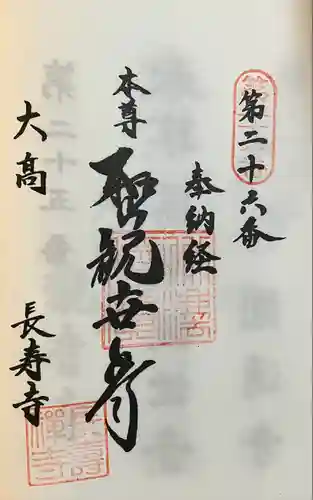 第二十六番
奉納経
本尊
聖観世音
大高
長寿寺